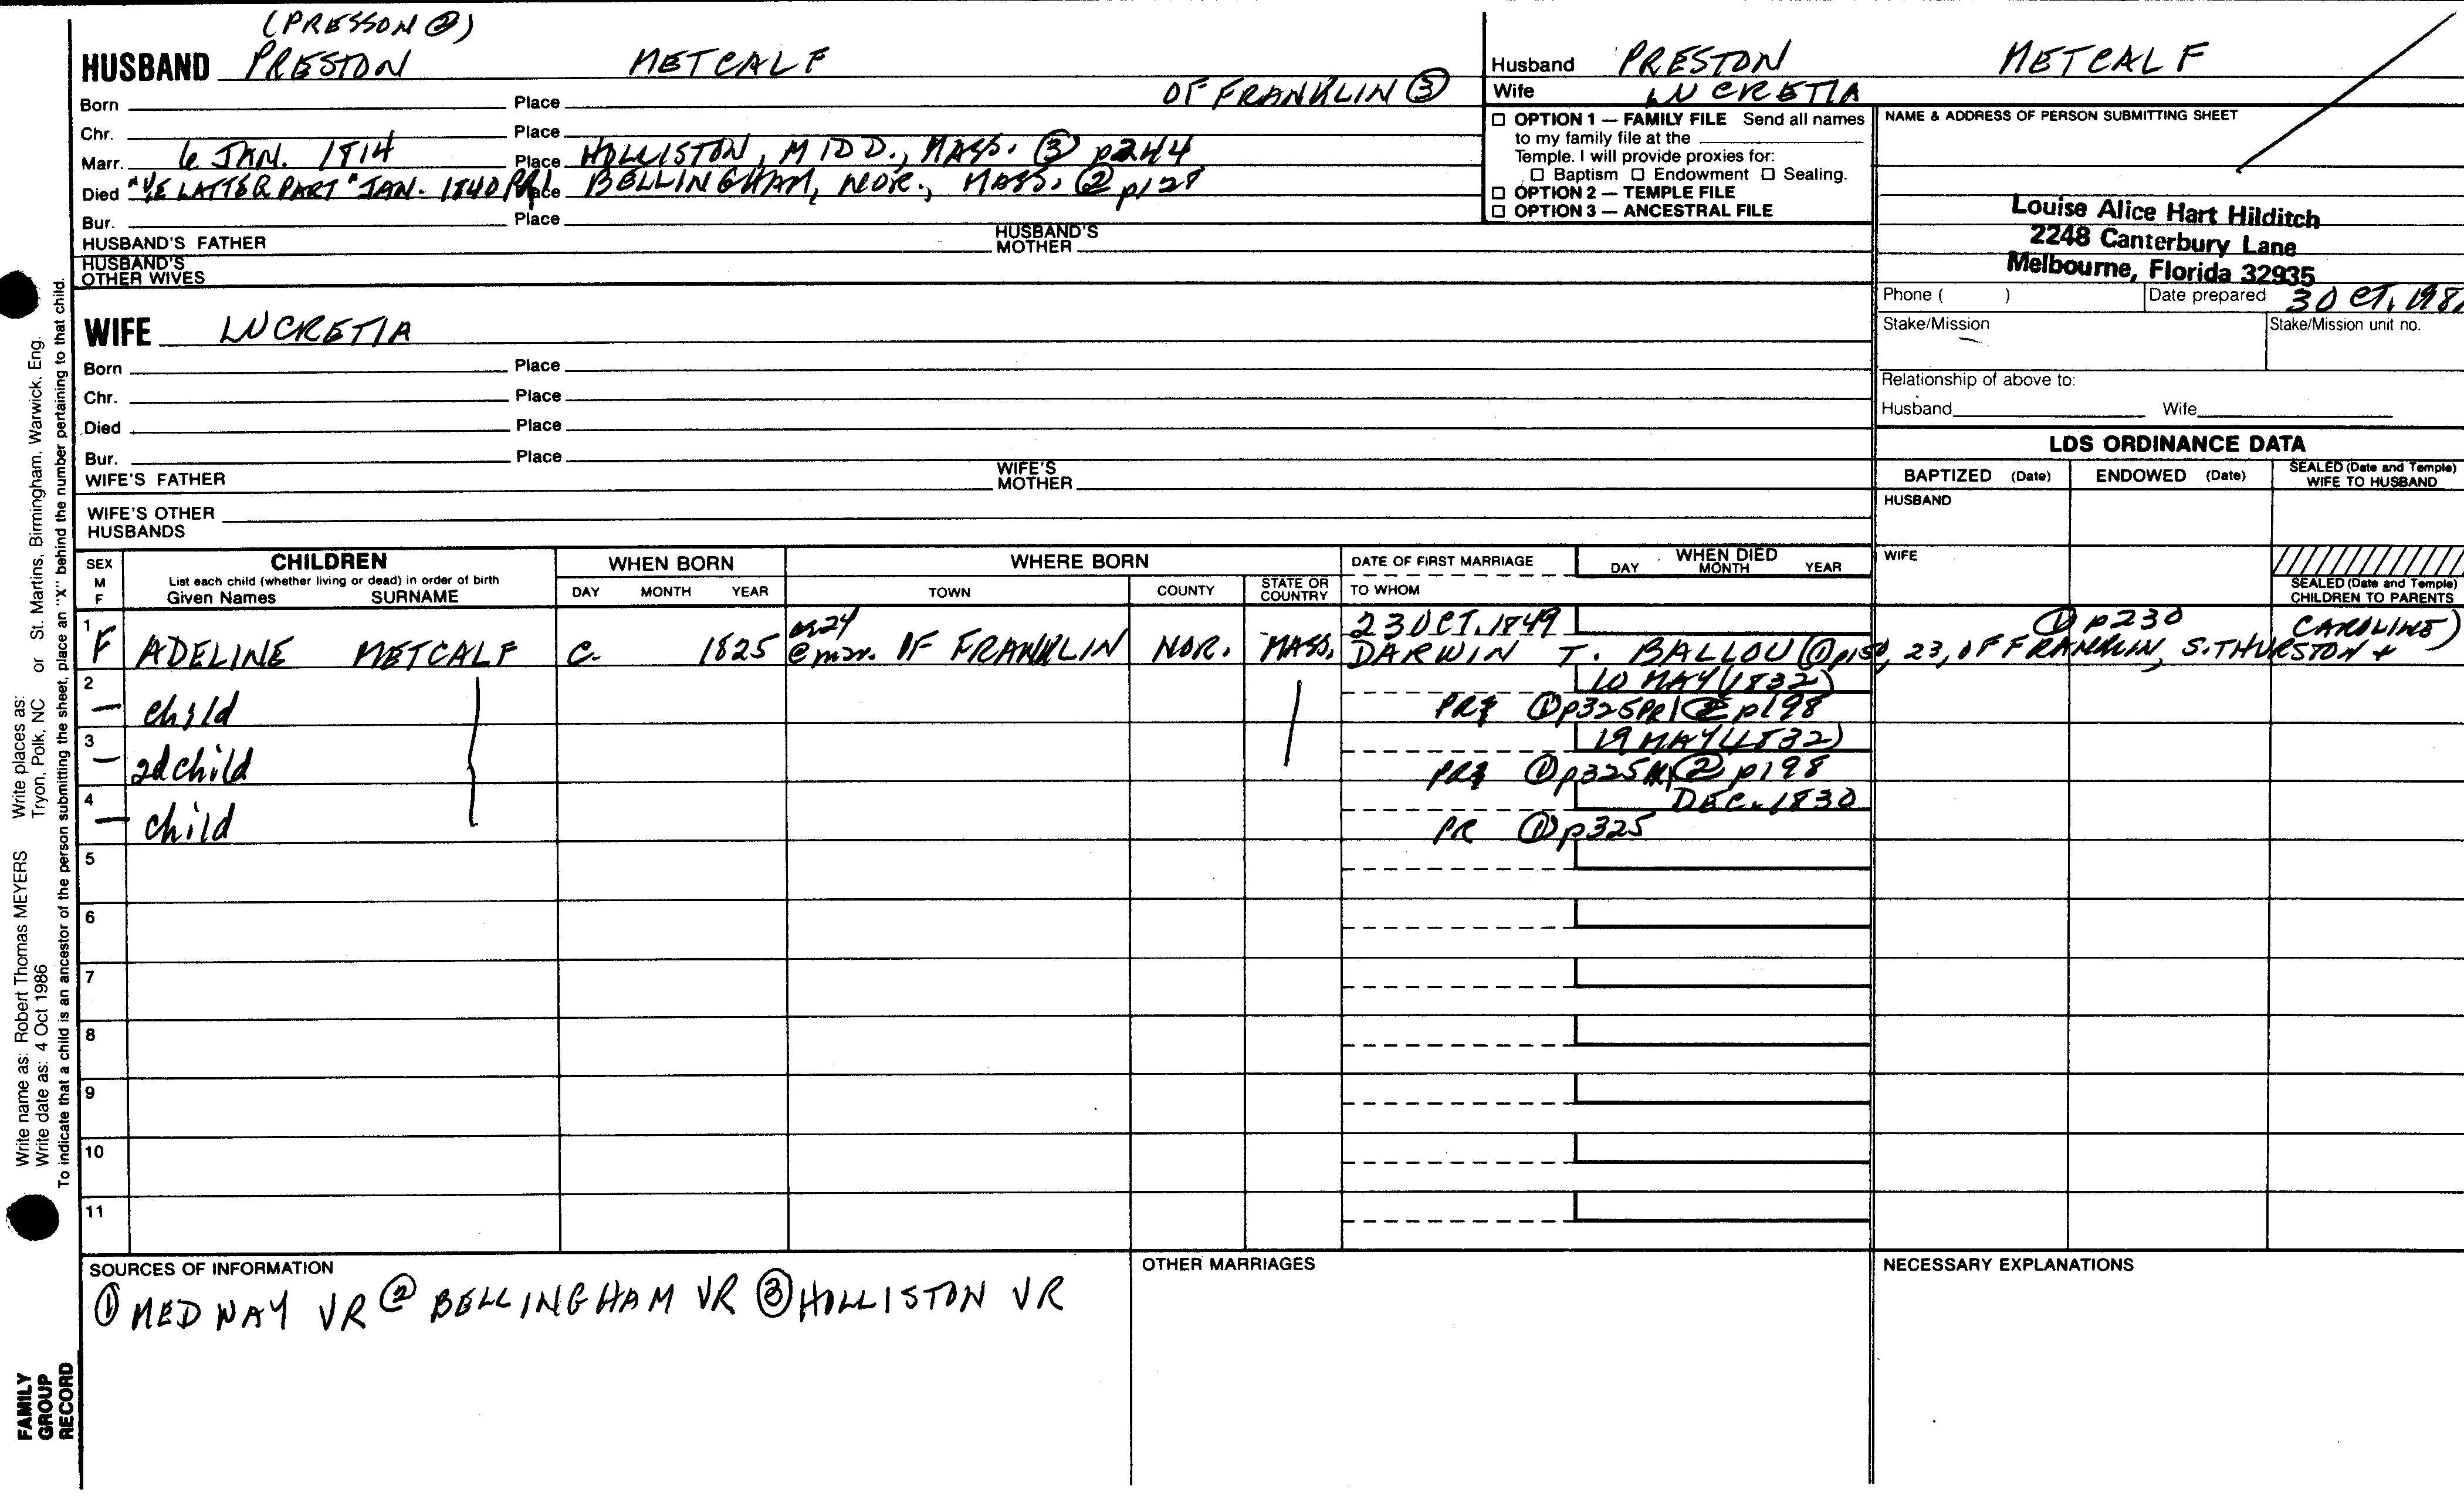 (PRESSON ②)
HUSBAND PRESTON METCALF
OF FRANKLIN ③
Born Place
Chr. Place
Marr. 6 JAN. 1814 Place HOLLISTON, MIDD., MASS. ③ p244
Died "YE LATTER PART" JAN. 1840 PR1 Place BELLINGHAM, NOR., MASS. ② p128
Bur. Place
HUSBAND'S FATHER HUSBAND'S MOTHER
HUSBAND'S OTHER WIVES
Husband PRESTON METCALF
Wife LUCRETIA
☐ OPTION 1 — FAMILY FILE Send all names
to my family file at the
Temple. I will provide proxies for:
☐ Baptism ☐ Endowment ☐ Sealing.
☐ OPTION 2 — TEMPLE FILE
☐ OPTION 3 — ANCESTRAL FILE
NAME & ADDRESS OF PERSON SUBMITTING SHEET
Louise Alice Hart Hilditch
2248 Canterbury Lane
Melbourne, Florida 32935
Phone ( ) Date prepared 3 OCT. 198
Stake/Mission Stake/Mission unit no.
Relationship of above to:
Husband Wife
WIFE LUCRETIA
Born Place
Chr. Place
Died Place
Bur. Place
WIFE'S FATHER WIFE'S MOTHER
WIFE'S OTHER HUSBANDS
LDS ORDINANCE DATA
BAPTIZED (Date) ENDOWED (Date) SEALED (Date and Temple) WIFE TO HUSBAND
HUSBAND
WIFE
SEALED (Date and Temple) CHILDREN TO PARENTS
SEX M F
CHILDREN
List each child (whether living or dead) in order of birth
Given Names SURNAME
WHEN BORN
DAY MONTH YEAR
WHERE BORN
TOWN COUNTY STATE OR COUNTRY
DATE OF FIRST MARRIAGE
TO WHOM
WHEN DIED
DAY MONTH YEAR
1 24 23 OCT. 1849 ① p230 CAROLINE)
F ADELINE METCALF C. 1825 @ mar. OF FRANKLIN NOR. MASS. DARWIN T. BALLOU (① p150, 23, OF FRANKLIN, S. THURSTON +
2 10 MAY (1832)
— child ① p325 PR1 ② p198
3 19 MAY (1832)
— 2d child ① p325 ② p198
4 DEC. 1830
— child PR ① p325
5
6
7
8
9
10
11
SOURCES OF INFORMATION
① MEDWAY VR ② BELLINGHAM VR ③ HOLLISTON VR
OTHER MARRIAGES
NECESSARY EXPLANATIONS
Write places as: Tryon, Polk, NC or St. Martins, Birmingham, Warwick, Eng.
Write name as: Robert Thomas MEYERS
Write date as: 4 Oct 1986
To indicate that a child is an ancestor of the person submitting the sheet, place an "X" behind the number pertaining to that child.
FAMILY
GROUP
RECORD